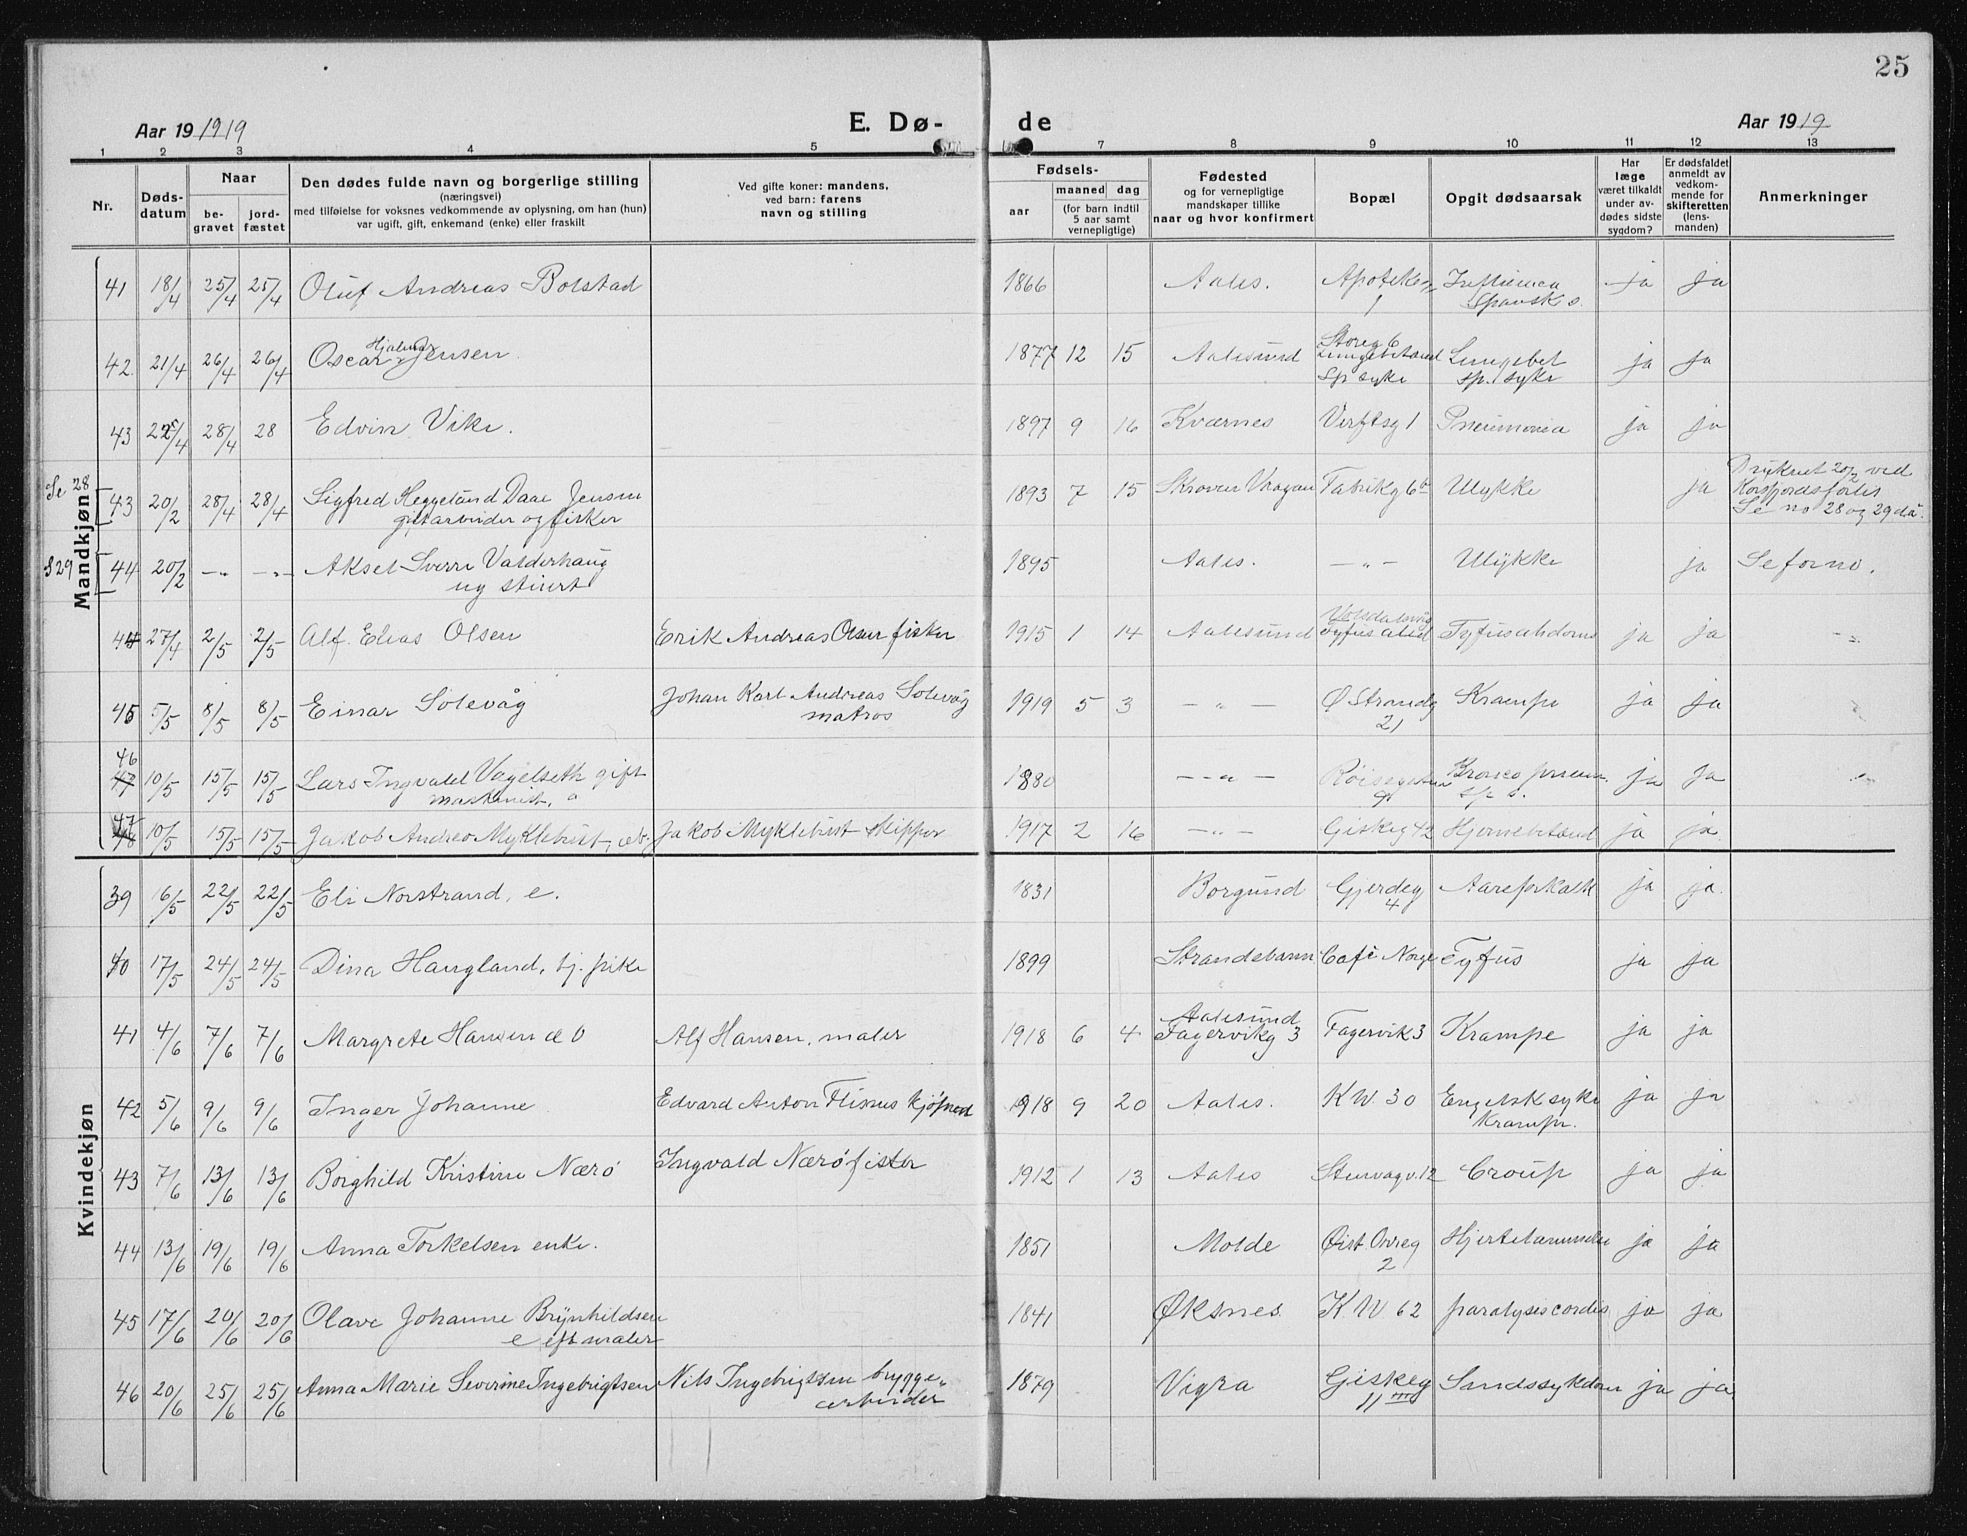 25
Aar 19 1919
E. Dø-
de
Aar 1919
1 2 3 4 5 7 8 9 10 11 12 13
Nr.
Døds-
datum
Naar
be-
gravet
jord-
fæstet
Den dødes fulde navn og borgerlige stilling
(næringsvei)
med tilføielse for voksnes vedkommende av oplysning, om han (hun)
var ugift, gift, enkemand (enke) eller fraskilt
Ved gifte koner: mandens,
ved barn: farens
navn og stilling
Fødsels-
aar
maaned dag
(for barn indtil
5 aar samt
vernepligtige)
Fødested
og for vernepligtige
mandskaper tillike
naar og hvor konfirmert
Bopæl
Opgit dødsaarsak
Har
læge
været tilkaldt
under av-
dødes sidste
sygdom?
Er dødsfaldet
anmeldt av
vedkom-
mende for
skifteretten
(lens-
manden)
Anmerkninger
Mandkjøn
41 18/4 25/4 25/4 Oluf Andreas Bolstad 1866 Aales. Apoteke- Influenca ja ja
1 Spansk s.
Hjalmar
42. 21/4 26/4 26/4 Oscar Jensen. 1877 12 15 Aalesund Storeg 6 Lungebet ja ja
Lungebetænd
Sp syke sp. syke
43 28/4 28 Edvin Vike. 1897 9 16 Kværnes Verftsg 1 Pneumonia ja ja
Se 28
43 20/2 28/4 28/4 Sigfred Heggelund Daae Jensen 1893 7 15 Skroven Vaagan Fabrikg 6b Ulykke ja Druknet 20/2 ved
og fisker
Korsfjordsfortis
Se no 28 og 29 da.
S 29
44 20/2 -„- -„- Aksel Sverre Valderhaug 1895 Aales. -„- Ulykke ja Se forno.
ug stuert
44 27/4 2/5 2/5 Alf. Elias Olsen Erik Andreas Olsen fisker 1915 1 14 Aalesund Tyfus abdom ja ja
45 5/5 8/5 8/5 Einar Solevåg Johan Karl Andreas Solevåg 1919 5 3 -„- Ø Strandg Krampe ja ja
matros 21
46
47 10/5 15/5 15/5 Lars Ingvald Vagelseth gift 1880 -„- ja ja
maskinist,
47
48 10/5 15/5 15/5 Jakob Andreas Myklebust, Jakob Myklebust skipper 1917 2 16 -„- Giskeg 42 Hjernebetænd ja ja
Kvindekjøn
39 16/5 22/5 22/5 Eli Norstrand, e. 1831 Borgund Gjerdeg Aareforkalk ja ja.
4
40 17/5 24/5 24/5 Dina Haugland, tj. pike 1899 Strandebarm Café Norge Tyfus ja ja
41 4/6 7/6 7/6 Margrete Hansen æ Alf Hansen, maler 1918 6 4 Aalesund Fagervik 3 Krampe ja ja
Fagervikg 3
42 5/6 9/6 9/6 Inger Johanne Edvard Anton Flisnes kjøpmd 1918 9 20 Aales. K W. 30 Engelsk syke ja ja
Krampe.
43 7/6 13/6 13/6 Borghild Kristine Nærø Ingvald Nærø fisker 1912 1 13 Aales Stenvag v. 12 Croup ja ja
44 13/6 19/6 19/6 Anna Torkelsen enke. 1851 Molde Øist. Ovreg ja ja
2
45 17/6 20/6 20/6 Olave Johanne Brynhildsen 1841 Øksnes. K W 62 paralysis cordis ja ja
e eft maler
46 20/6 25/6 25/6 Anna Marie Severine Ingebrigtsen Nils Ingebrigtsen brygge- 1879 Vigra Giskeg Sindssykdom ja ja
arbeider 11 III